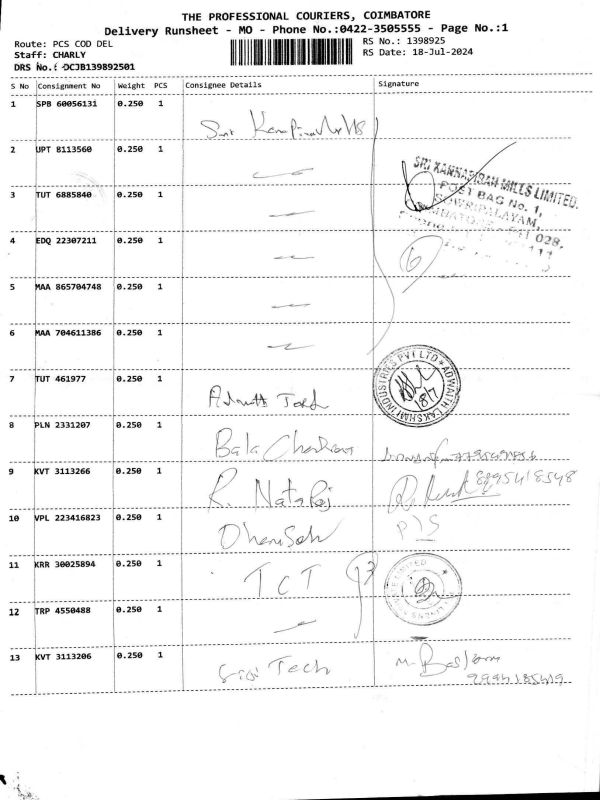 THE PROFESSIONAL COURIERS, COIMBATORE
Delivery Runsheet - MO - Phone No.:0422-3505555 - Page No.:1
Route: PCS COD DEL
RS No.: 1398925
Staff: CHARLY
RS Date: 18-Jul-2024
DRS No.: DCJB139892501
S No Consignment No Weight PCS Consignee Details Signature
1 SPB 60056131 0.250 1
2 UPT 8113560 0.250 1
SRI KANNAPIRAN MILLS LIMITED.
POST BAG No. 1,
SOWRIPALAYAM,
028.
3 TUT 6885840 0.250 1
4 EDQ 22307211 0.250 1
6
5 MAA 865704748 0.250 1
6 MAA 704611386 0.250 1
7 TUT 461977 0.250 1
ADWAITH LAKSHMI INDUSTRIES PVT LTD
18/7
8 PLN 2331207 0.250 1 Bala
9 KVT 3113266 0.250 1 R. Nataraj 8895418548
10 VPL 223416823 0.250 1
11 KRR 30025894 0.250 1 TCT
LIMITED
12 TRP 4550488 0.250 1
13 KVT 3113206 0.250 1 Tech